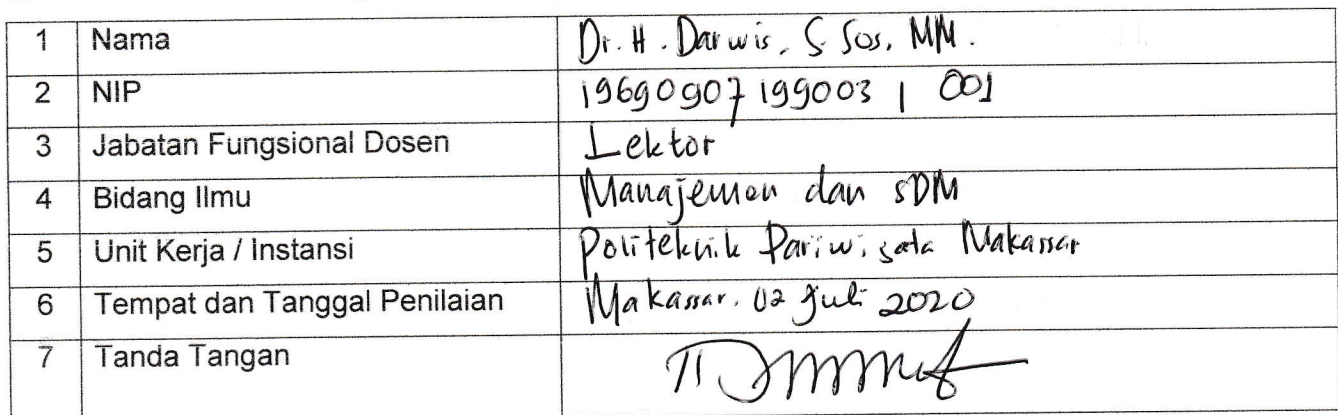 1 Nama Dr. H. Darwis, S. Sos, MM.
2 NIP 19690907 199003 1 001
3 Jabatan Fungsional Dosen Lektor
4 Bidang Ilmu Manajemen dan SDM
5 Unit Kerja / Instansi Politeknik Pariwisata Makassar
6 Tempat dan Tanggal Penilaian Makassar. 02 Juli 2020
7 Tanda Tangan